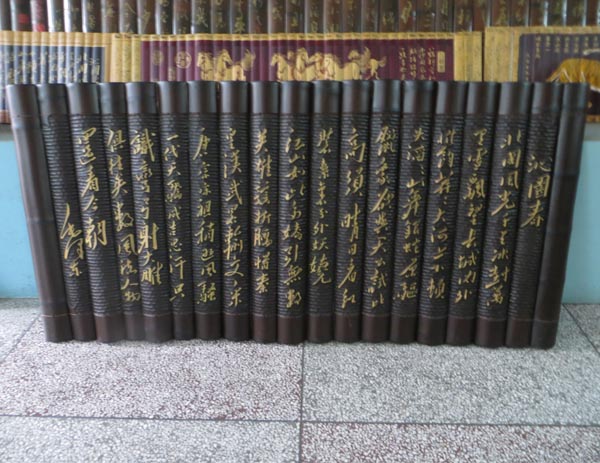 沁園春
北國風光千里冰封萬
里雪飄望長城内外
惟餘莽莽大河上下頓
失滔滔山舞銀蛇原驅
臘象欲與天公試比
高須晴日看紅
裝素裹分外妖嬈
江山如此多嬌引無數
英雄競折腰惜秦
皇漢武略輸文采
唐宗宋祖稍遜風騷
一代天驕成吉思汗只
識彎弓射大雕
俱往矣數風流人物
還看今朝
毛澤東